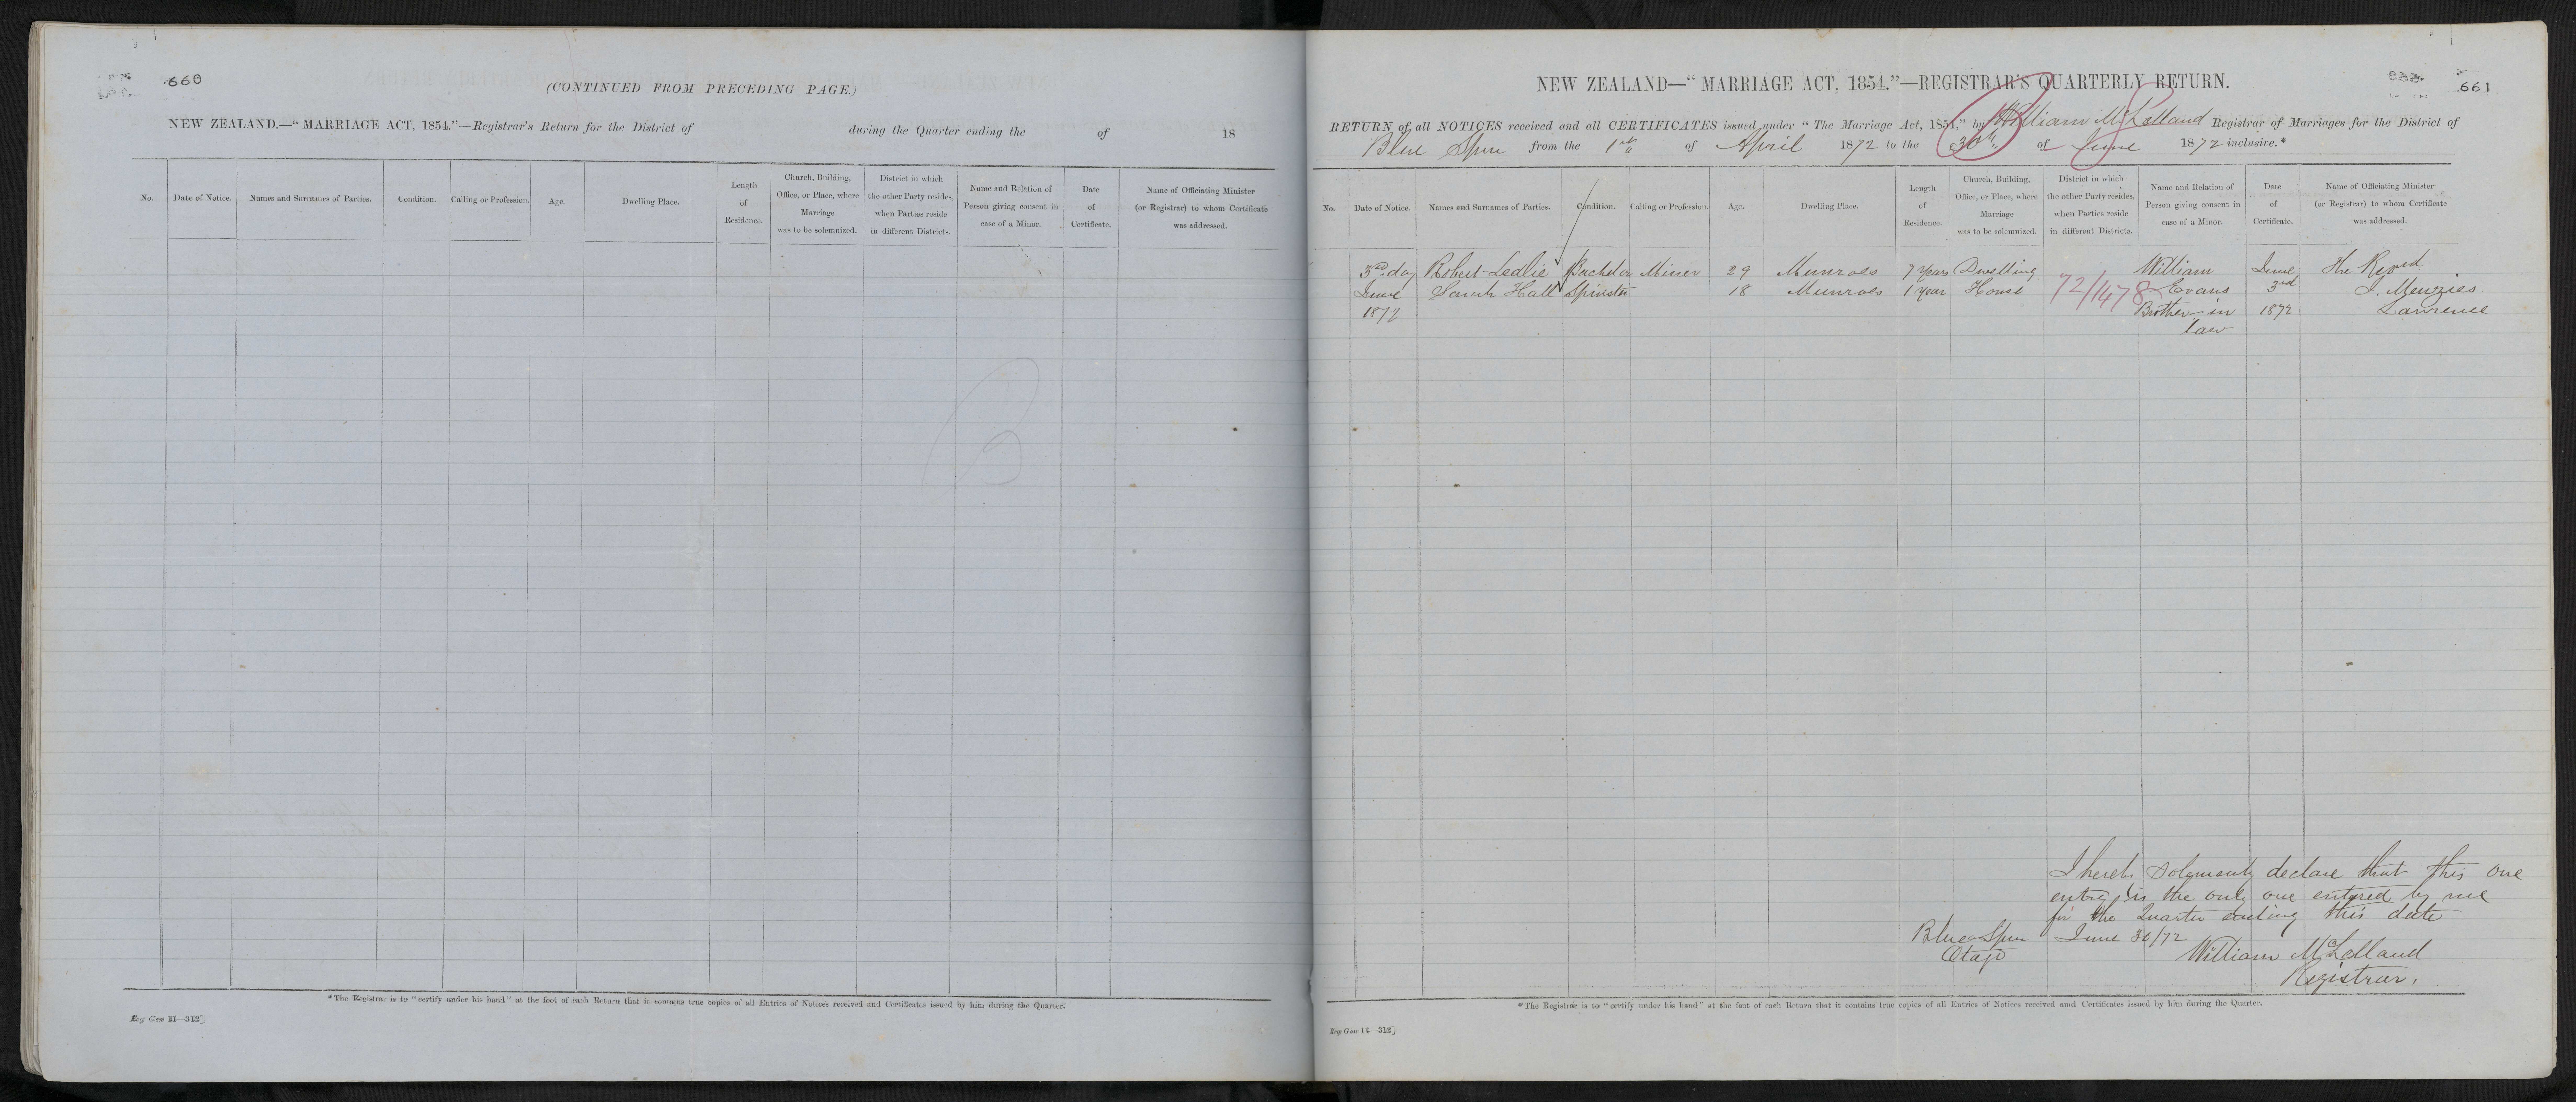 660
(CONTINUED FROM PRECEDING PAGE.)
NEW ZEALAND.—“MARRIAGE ACT, 1854.”—Registrar's Return for the District of during the Quarter ending the of 18
No. Date of Notice. Names and Surnames of Parties. Condition. Calling or Profession. Age. Dwelling Place. Length of Residence. Church, Building, Office, or Place, where Marriage was to be solemnized. District in which the other Party resides, when Parties reside in different Districts. Name and Relation of Person giving consent in case of a Minor. Date of Certificate. Name of Officiating Minister (or Registrar) to whom Certificate was addressed.
*The Registrar is to “certify under his hand” at the foot of each Return that it contains true copies of all Entries of Notices received and Certificates issued by him during the Quarter.
Reg Gen 11—312
661
NEW ZEALAND—“MARRIAGE ACT, 1854.”—REGISTRAR'S QUARTERLY RETURN.
RETURN of all NOTICES received and all CERTIFICATES issued under “The Marriage Act, 1854,” by William McLelland Registrar of Marriages for the District of
Blue Spur from the 1st of April 1872 to the 30th of June 1872 inclusive.*
No. Date of Notice. Names and Surnames of Parties. Condition. Calling or Profession. Age. Dwelling Place. Length of Residence. Church, Building, Office, or Place, where Marriage was to be solemnized. District in which the other Party resides, when Parties reside in different Districts. Name and Relation of Person giving consent in case of a Minor. Date of Certificate. Name of Officiating Minister (or Registrar) to whom Certificate was addressed.
3rd day Robert Leslie Bachelor Miner 29 Munroes 7 Years Dwelling William June The Revd
June Sarah Hall Spinster 18 Munroes 1 year House 72/1478 Evans 3rd J. Menzies
1872 Brother in 1872 Lawrence
law
I hereby Solemnly declare that this one
entry is the only one entered by me
for the Quarter ending this date
Blue Spur June 30/72
Otago William McLelland
Registrar.
*The Registrar is to “certify under his hand” at the foot of each Return that it contains true copies of all Entries of Notices received and Certificates issued by him during the Quarter.
Reg Gen 11—312